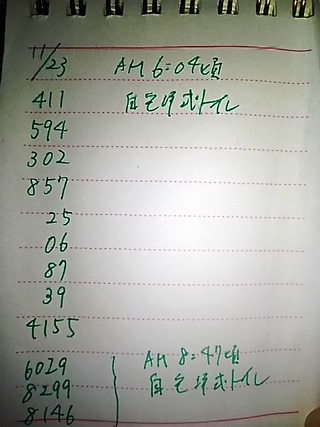 11/23 AM 6:04頃
411 自宅洋式トイレ
594
302
857
25
06
87
39
4155
6029
8299 AM 8:47頃
8146 自宅洋式トイレ